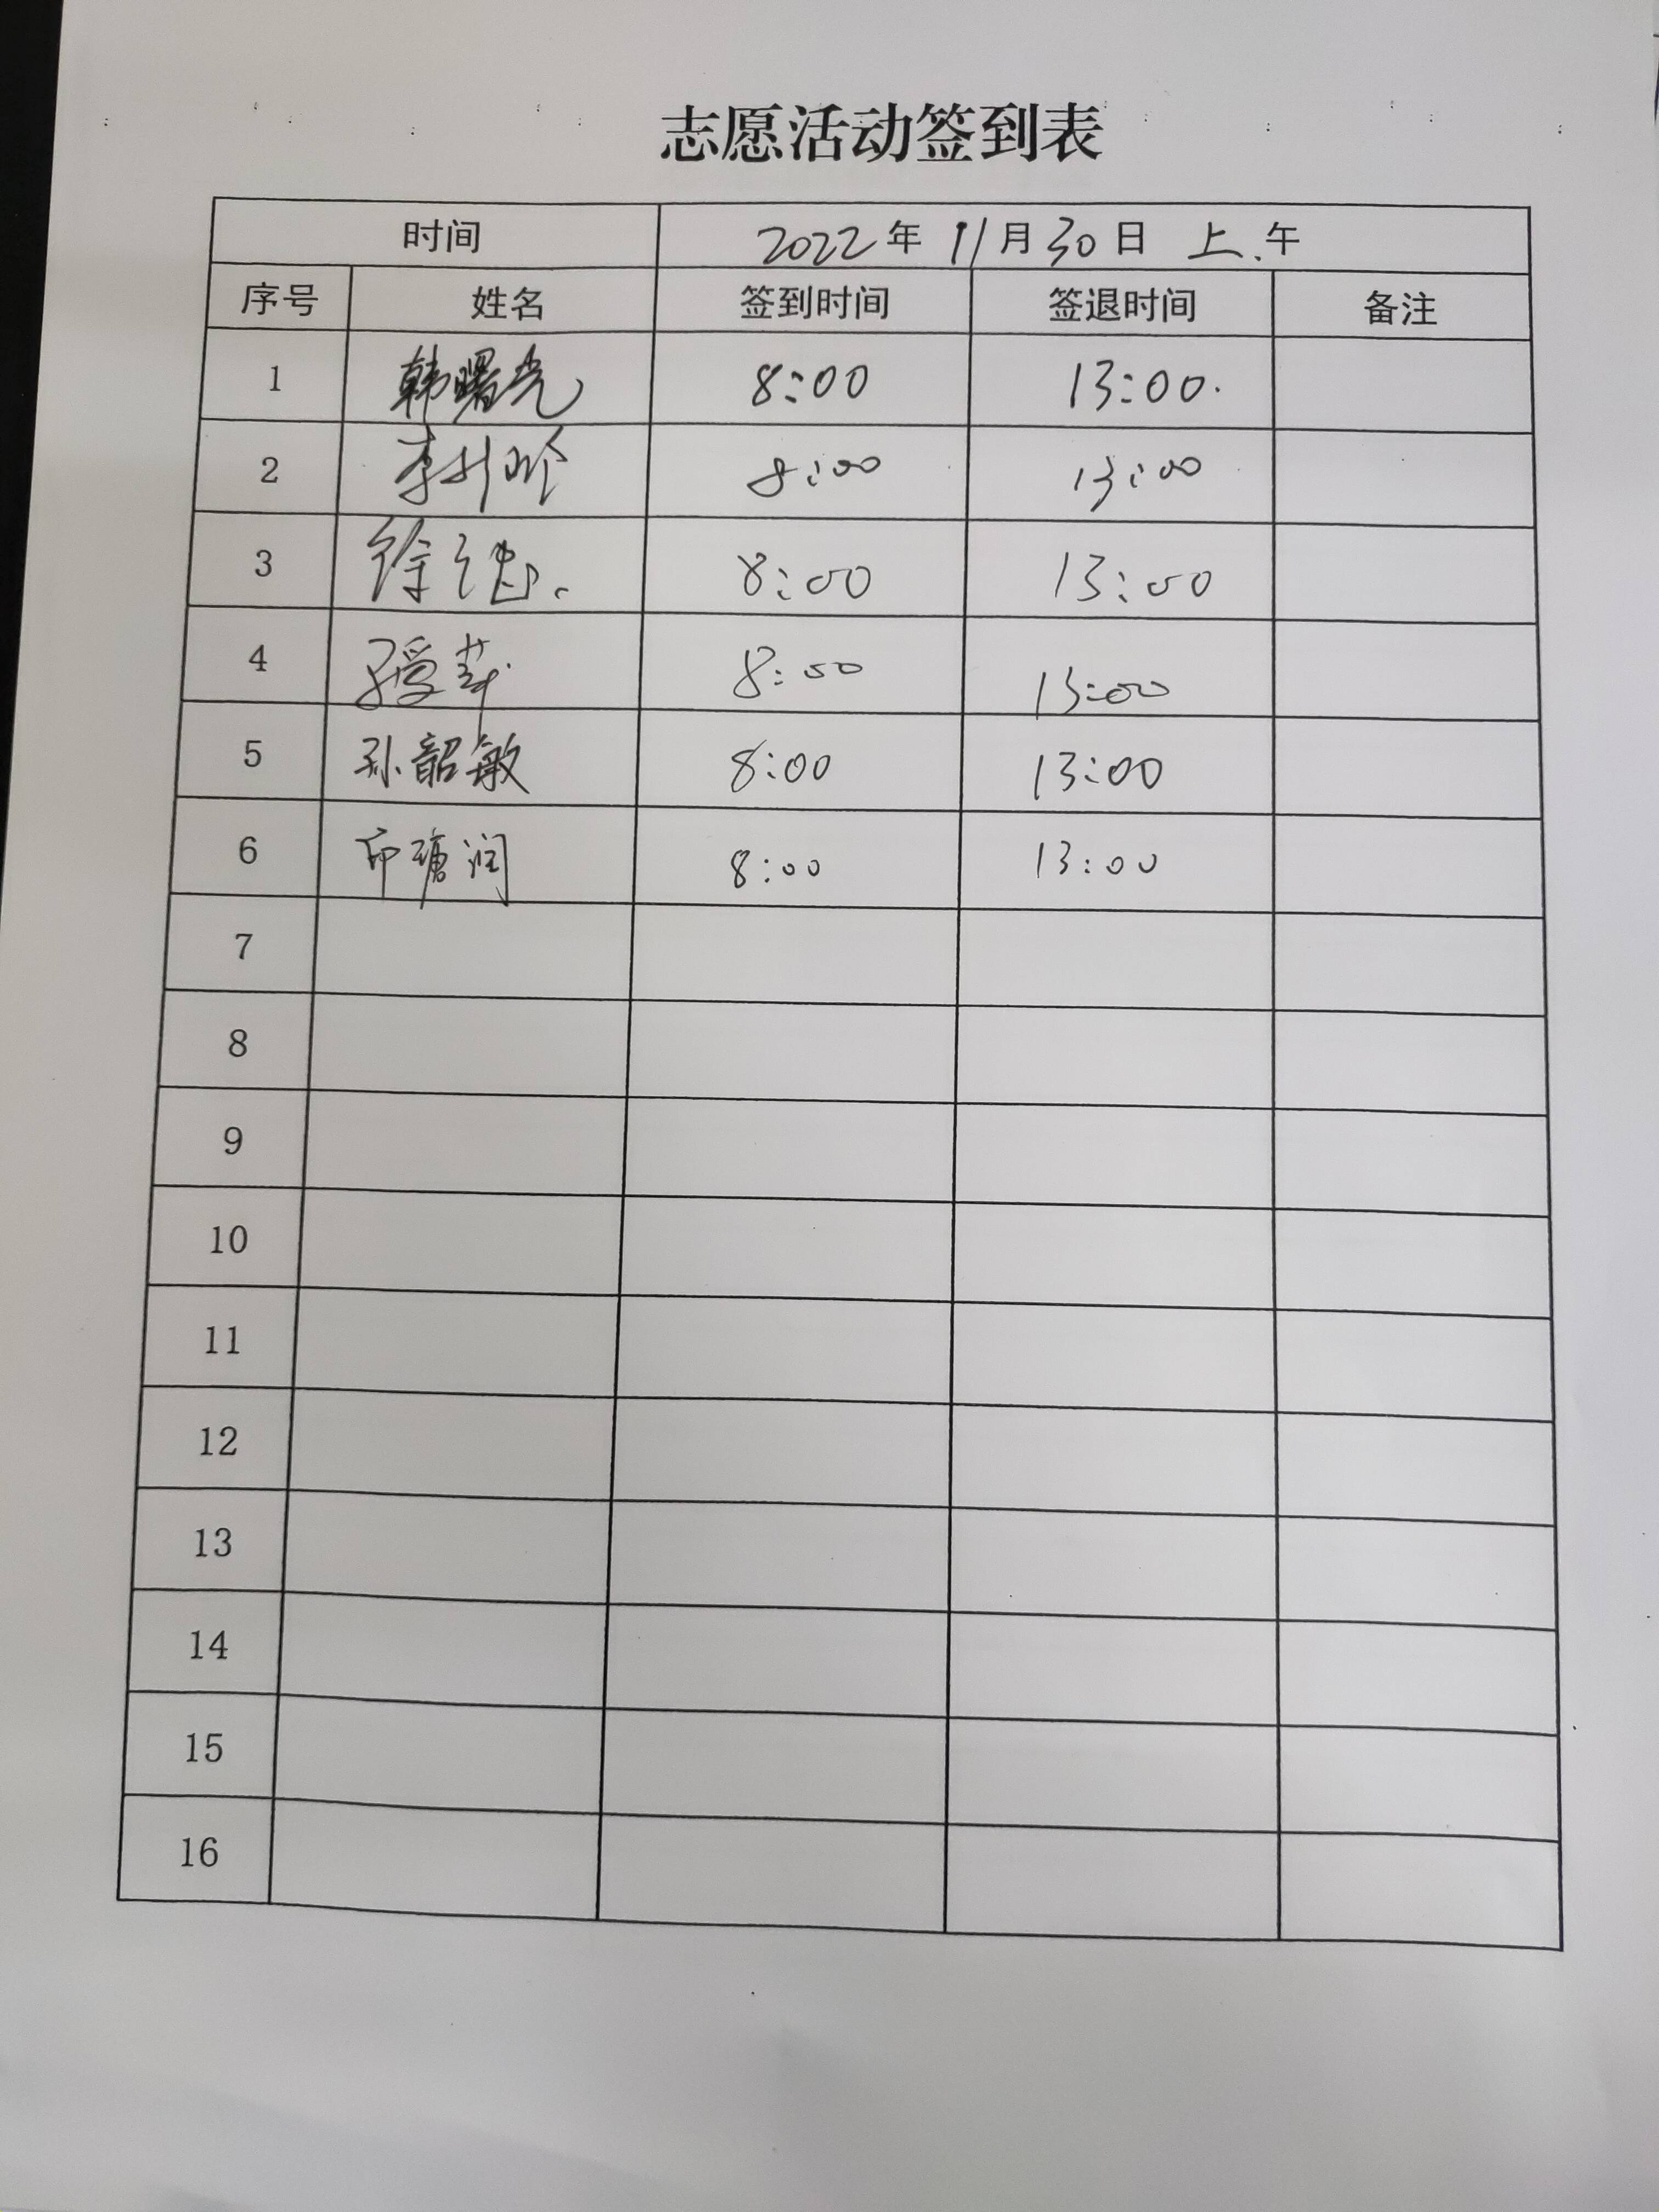 志愿活动签到表
时间 2022年 11月30日 上午
序号 姓名 签到时间 签退时间 备注
1 韩曙光 8:00 13:00
2 李 8:00 13:00
3 徐 8:00 13:00
4 8:00 13:00
5 孙韶敏 8:00 13:00
6 润 8:00 13:00
7
8
9
10
11
12
13
14
15
16